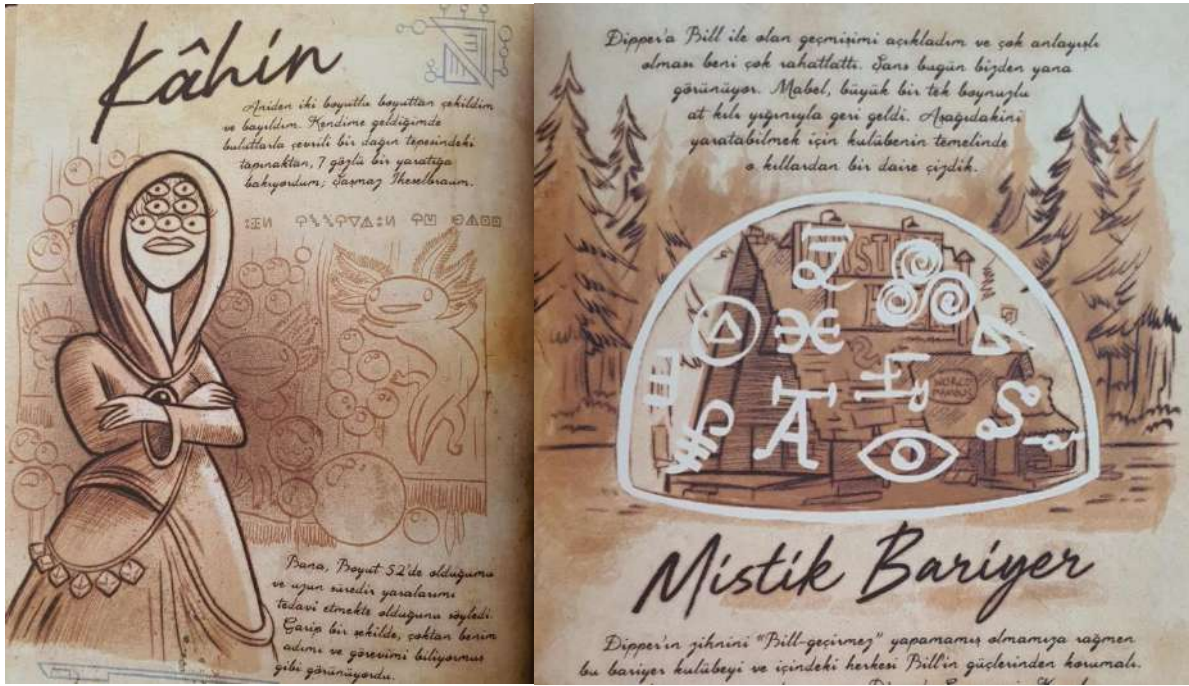 Kâhin
Aniden iki boyutlu boyuttan çekildim
ve bayıldım. Kendime geldiğimde
bulutlarla çevrili bir dağın tepesindeki
tapınaktan, 7 gözlü bir yaratığa
bakıyordum; Şaşmaz Jheselbraum.
Bana, Boyut 52'de olduğumu
ve uzun süredir yaralarımı
tedavi etmekte olduğunu söyledi.
Garip bir şekilde, çoktan benim
adımı ve görevimi biliyormuş
gibi görünüyordu.
Dipper'a Bill ile olan geçmişimi açıkladım ve çok anlayışlı
olması beni çok rahatlattı. Şans bugün bizden yana
görünüyor. Mabel, büyük bir tek boynuzlu
at kılı yığınıyla geri geldi. Aşağıdakini
yaratabilmek için kulübenin temelinde
o kıllardan bir daire çizdik.
WORLD
Mistik Bariyer
Dipper'ın zihnini "Bill-geçirmez" yapamamış olmamıza rağmen
bu bariyer kulübeyi ve içindeki herkesi Bill'in güçlerinden korumalı.